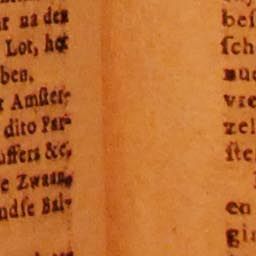 na den
Lot, het
ben.
Amſter-
dito Par-
uffers &c.
e Zwaan,
ndſe Bal-
beſ
ſch
nue
vre
zel
ſte
en
gi